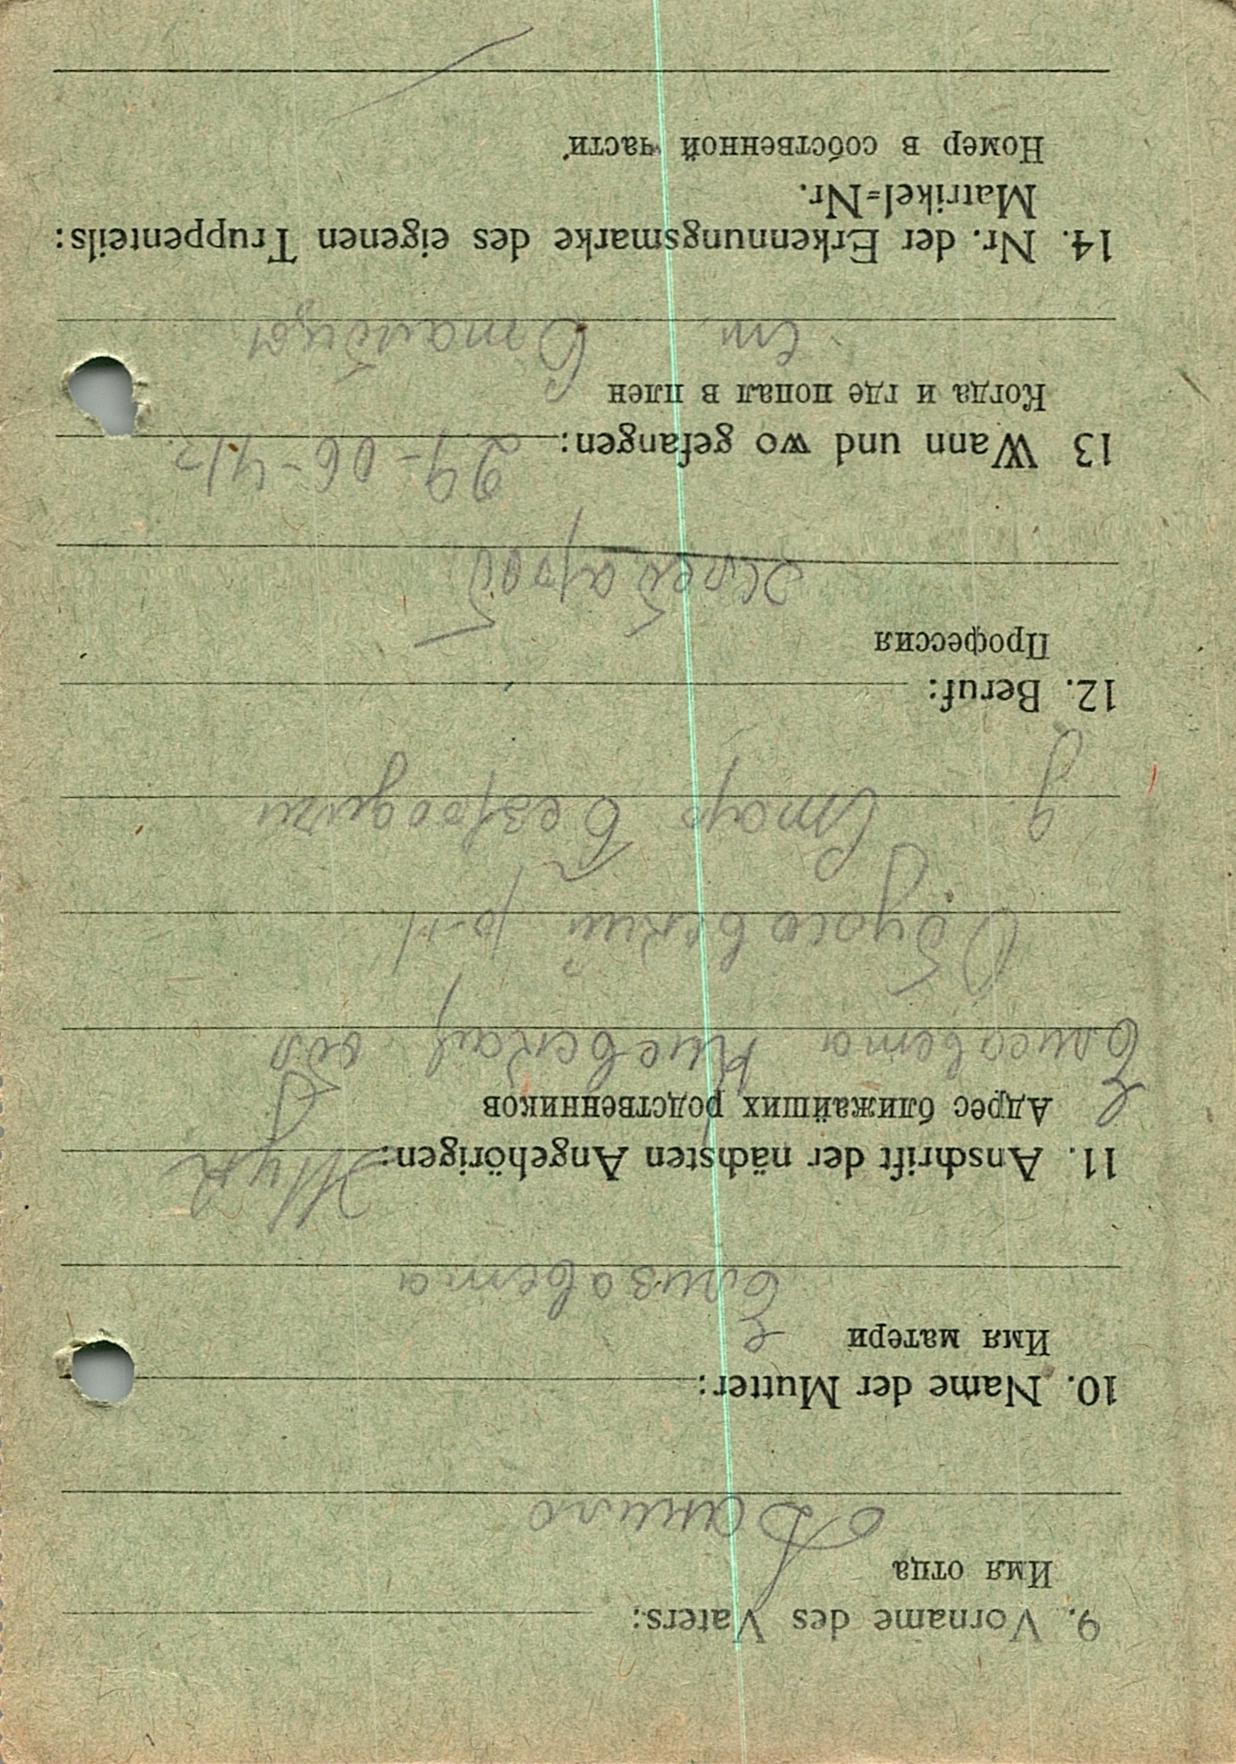 9. Vorname des Vaters:
Имя отца
Данило
10. Name der Mutter:
Имя матери
Елизавета
11. Anschrift der nächsten Angehörigen: Жук
Адрес ближайших родственников
Елисавета Киевская обл
Обуховский р-н
д. Стар Безродичи
12. Beruf:
Профессия
Хлебороб
13 Wann und wo gefangen: 29-06-41г.
Когда и где попал в плен
ст.
14. Nr. der Erkennungsmarke des eigenen Truppenteils:
Matrikel=Nr.
Номер в собственной части